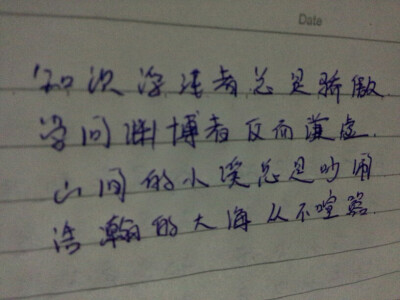 Date
知识浮浅者总是骄傲
学问渊博者反而谦虚.
山间的小溪总是吵闹
浩瀚的大海从不喧嚣